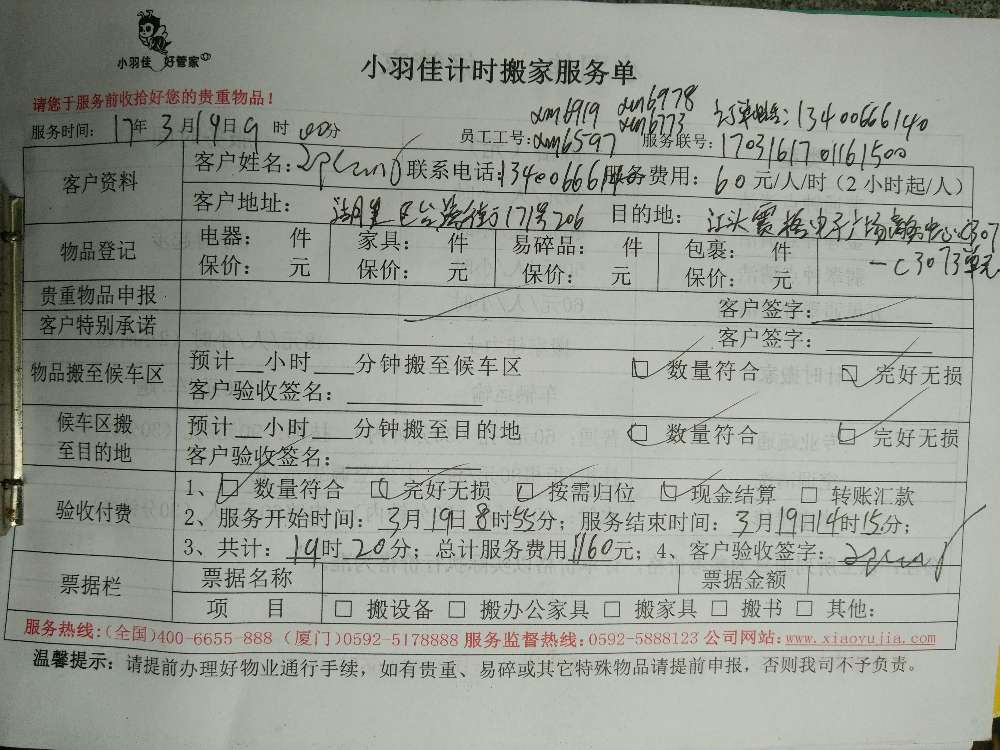 小羽佳 好管家
小羽佳计时搬家服务单
请您于服务前收拾好您的贵重物品！
xm6919 xm6978
服务时间：17年3月19日9时00分 员工工号：xm6597 xm6773 订单姓名：13400666140
服务联号：1703161701161500
客户资料 客户姓名： 联系电话：13400666140 服务费用：60元/人/时（2小时起/人）
客户地址：湖里区 街171号206 目的地：江头赛格电子广场商务中心C307
一C3073单元
物品登记 电器： 件 家具： 件 易碎品： 件 包裹： 件
保价： 元 保价： 元 保价： 元 保价： 元
贵重物品申报 客户签字：
客户特别承诺 客户签字：
物品搬至候车区 预计__小时___分钟搬至候车区 □ 数量符合 □ 完好无损
客户验收签名：
候车区搬至目的地 预计__小时___分钟搬至目的地 □ 数量符合 □ 完好无损
客户验收签名：
验收付费 1、□ 数量符合 □ 完好无损 □ 按需归位 □ 现金结算 □ 转账汇款
2、服务开始时间：3月19日8时55分；服务结束时间：3月19日14时15分；
3、共计：19时20分；总计服务费用1160元；4、客户验收签字：
票据栏 票据名称 票据金额
项 目 □ 搬设备 □ 搬办公家具 □ 搬家具 □ 搬书 □ 其他：
服务热线:(全国)400-6655-888 (厦门)0592-5178888 服务监督热线:0592-5888123 公司网站:www.xiaoyujia.com
温馨提示：请提前办理好物业通行手续，如有贵重、易碎或其它特殊物品请提前申报，否则我司不予负责。